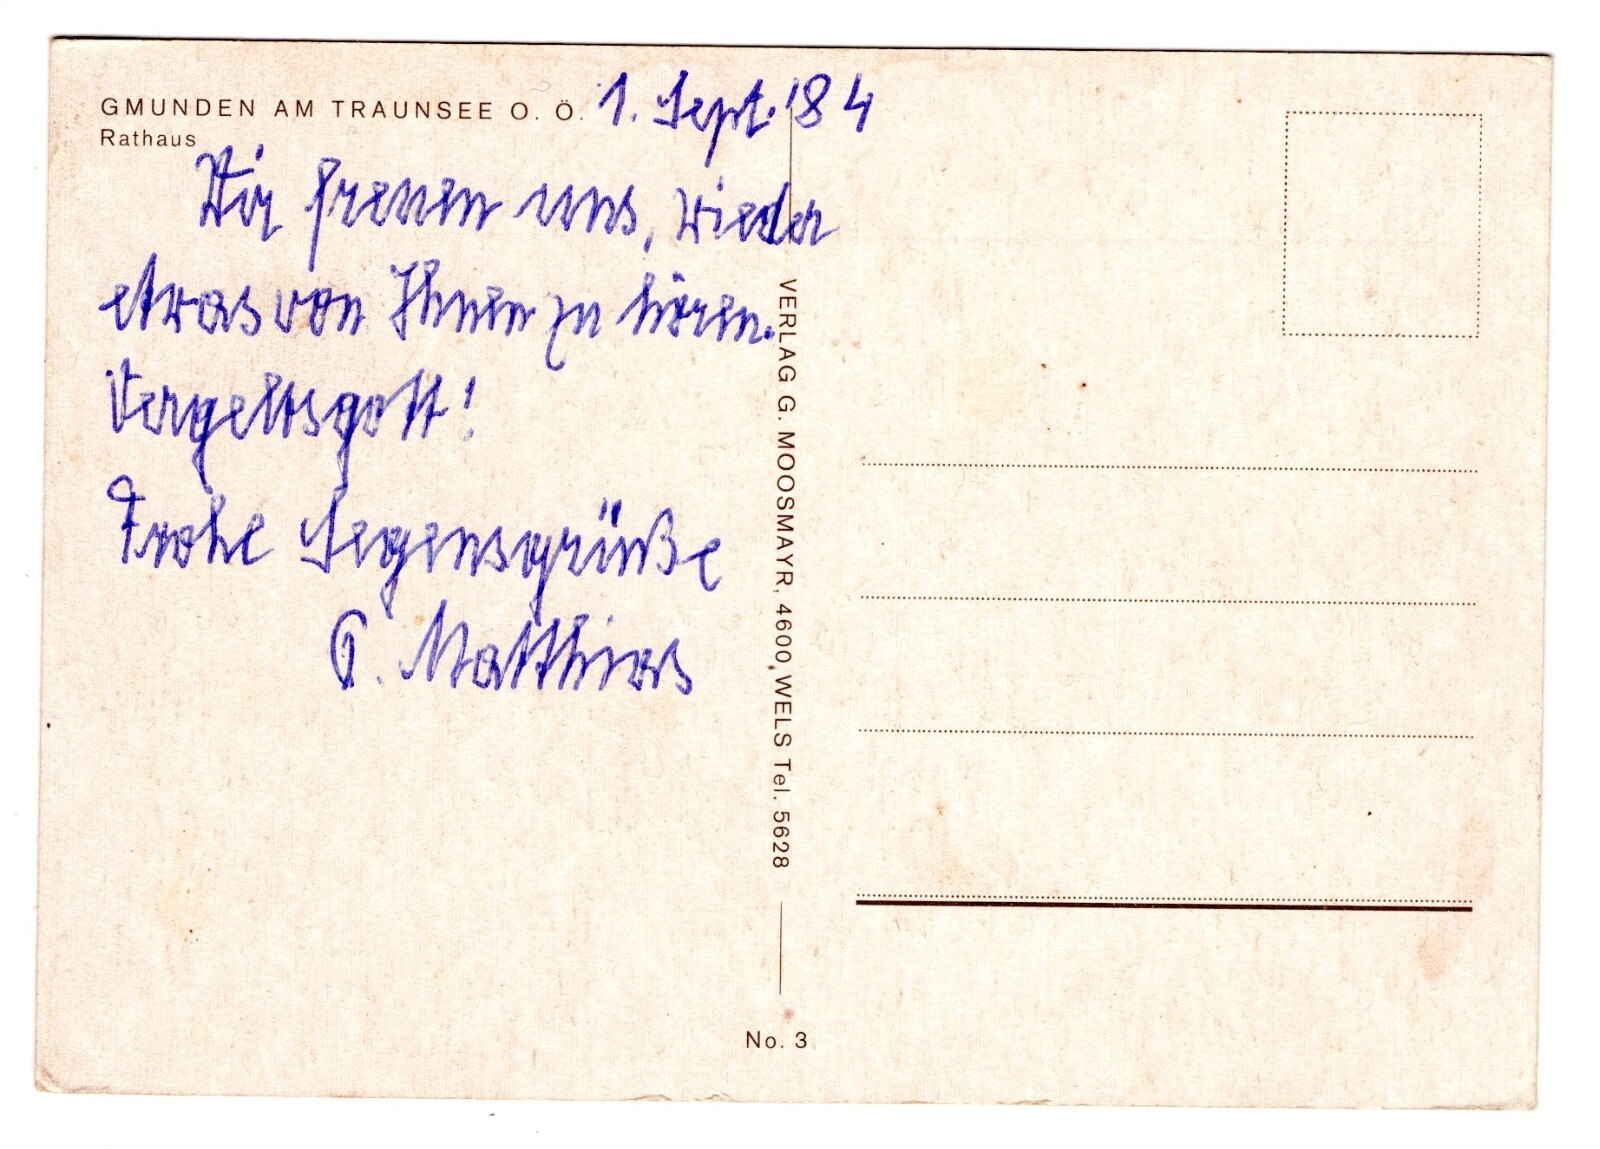 GMUNDEN AM TRAUNSEE O. Ö.
Rathaus
1. Sept. '84
Wir freuen uns, wieder
etwas von Ihnen zu hören.
Vergeltsgott!
Frohe Segensgrüße
P. Matthias
VERLAG G. MOOSMAYR, 4600 WELS Tel. 5628
No. 3